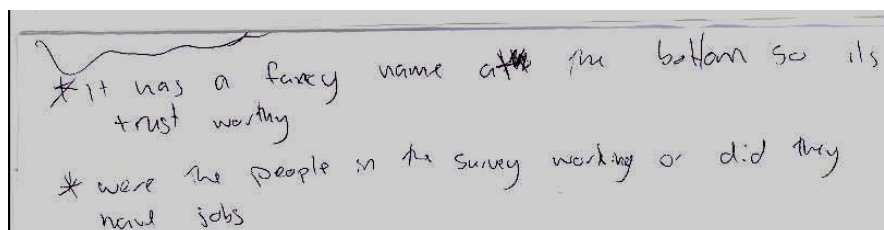 * it has a fancy name at the bottom so its
trust worthy
* were the people in the survey working or did they
have jobs